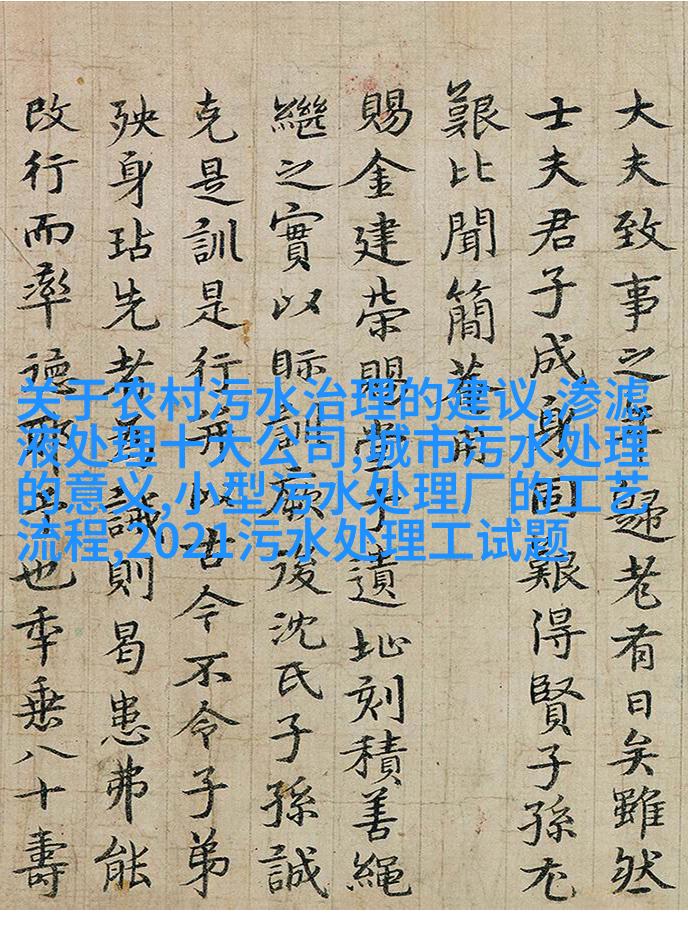 大夫致事之年歸老有日矣雖然
士夫君子成身固艱得賢子孫尤
艱比聞簡菴用
賜金建榮賜堂于遺址刻積善繩
繼之實以眎訓厥後沈氏子孫誠
克是訓是行并以古今不令子弟
殃身玷先者爲誡則曷患弗能
改行而率德耶也年垂八十壽
关于农村污水治理的建议,渗滤
液处理十大公司,城市污水处理
的意义,小型污水处理厂的工艺
流程,2021污水处理工试题